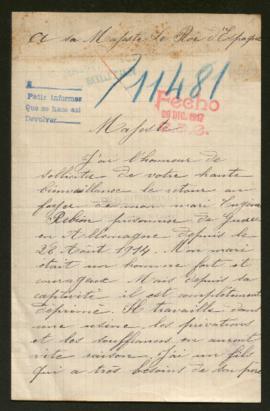 A sa Majesté le Roi d'Espagne
A
Pedir informes
Que se hace así
Devolver
711481
Fecho
DIC. 1917
Majesté
J'ai l'honneur de
solliciter de votre haute
bienveillance le retour au
foyer de mon mari
prisonnier de Guerre
en Allemagne depuis le
26 Août 1914. Mon mari
était un homme fort et
courageux Mais depuis sa
captivité il est complètement
déprimé. Il travaille dans
une usine les privations
et les souffrances en auront
vite raison. J'ai un fils
qui a très besoin de son père